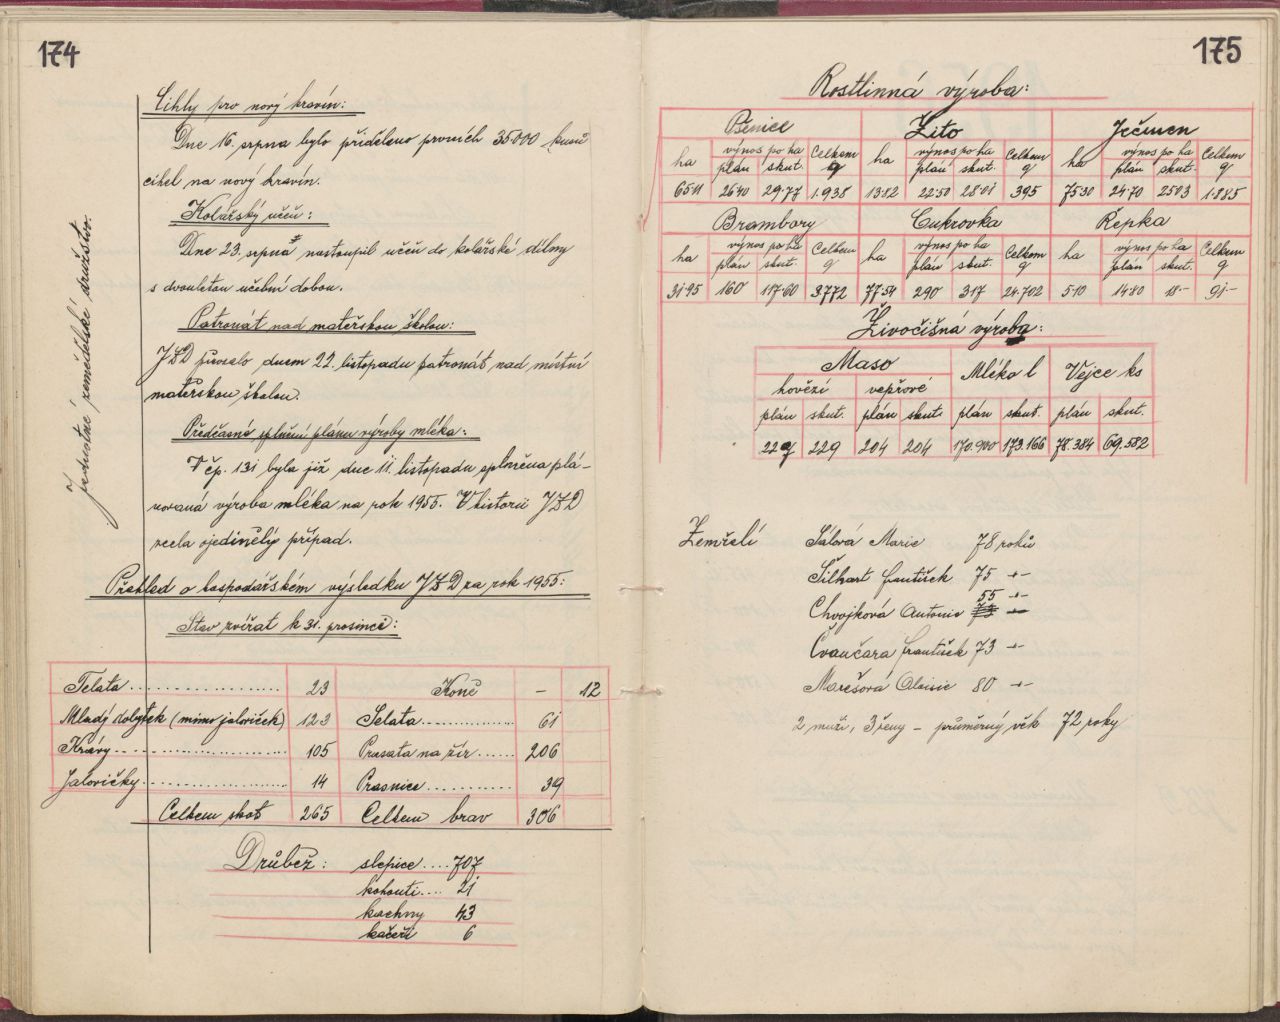 174
Cihly pro nový kravín:
Dne 16. srpna bylo přiděleno prvních 35000 kusů
cihel na nový kravín.
Kolářský učeň:
Dne 23. srpna nastoupil učeň do kolářské dílny
s dvouletou učební dobou.
Patronát nad mateřskou školou:
JZD převzalo dnem 22. listopadu patronát nad místní
mateřskou školou.
Předčasné splnění plánu výroby mléka:
V čp. 131 byla již dne 11. listopadu splněna plá-
novaná výroba mléka na rok 1955. V historii JZD
zcela ojedinělý případ.
Jednotné zemědělské družstvo.
Přehled o hospodářském výsledku JZD za rok 1955:
Stav zvířat k 31. prosinci:
Telata 23 Koně – 12
Mladý dobytek (mimo jaloviček) 123 Selata 61
Krávy 105 Prasata na žír 206
Jalovičky 14 Prasnice 39
Celkem skot 265 Celkem brav 306
Drůbež: slepice .... 707
kohouti .... 21
kachny 43
kačeři 6
175
Rostlinná výroba:
Pšenice Žito Ječmen
ha výnos po ha Celkem q ha výnos po ha Celkem q ha výnos po ha Celkem q
plán skut. plán skut. plán skut.
65·11 26·40 29·77 1.938 13·82 22·50 28·01 395 75·30 24·70 25·03 1.885
Brambory Cukrovka Řepka
ha výnos po ha Celkem q ha výnos po ha Celkem q ha výnos po ha Celkem q
plán skut. plán skut. plán skut.
31·95 160 117·60 3.772 77·54 290 317 24.702 5·10 14·80 18·– 91·–
Živočišná výroba:
Maso Mléko l Vejce ks
hovězí vepřové
plán skut. plán skut. plán skut. plán skut.
229 229 204 204 170.900 173.166 78.384 69.582
Zemřelí Sálová Marie 78 roků
Šilhart František 75 -"-
Chvojková Antonie 55 -"-
Čvančara František 73 -"-
Marešová Aloisie 80 -"-
2 muži, 3 ženy – průměrný věk 72 roky